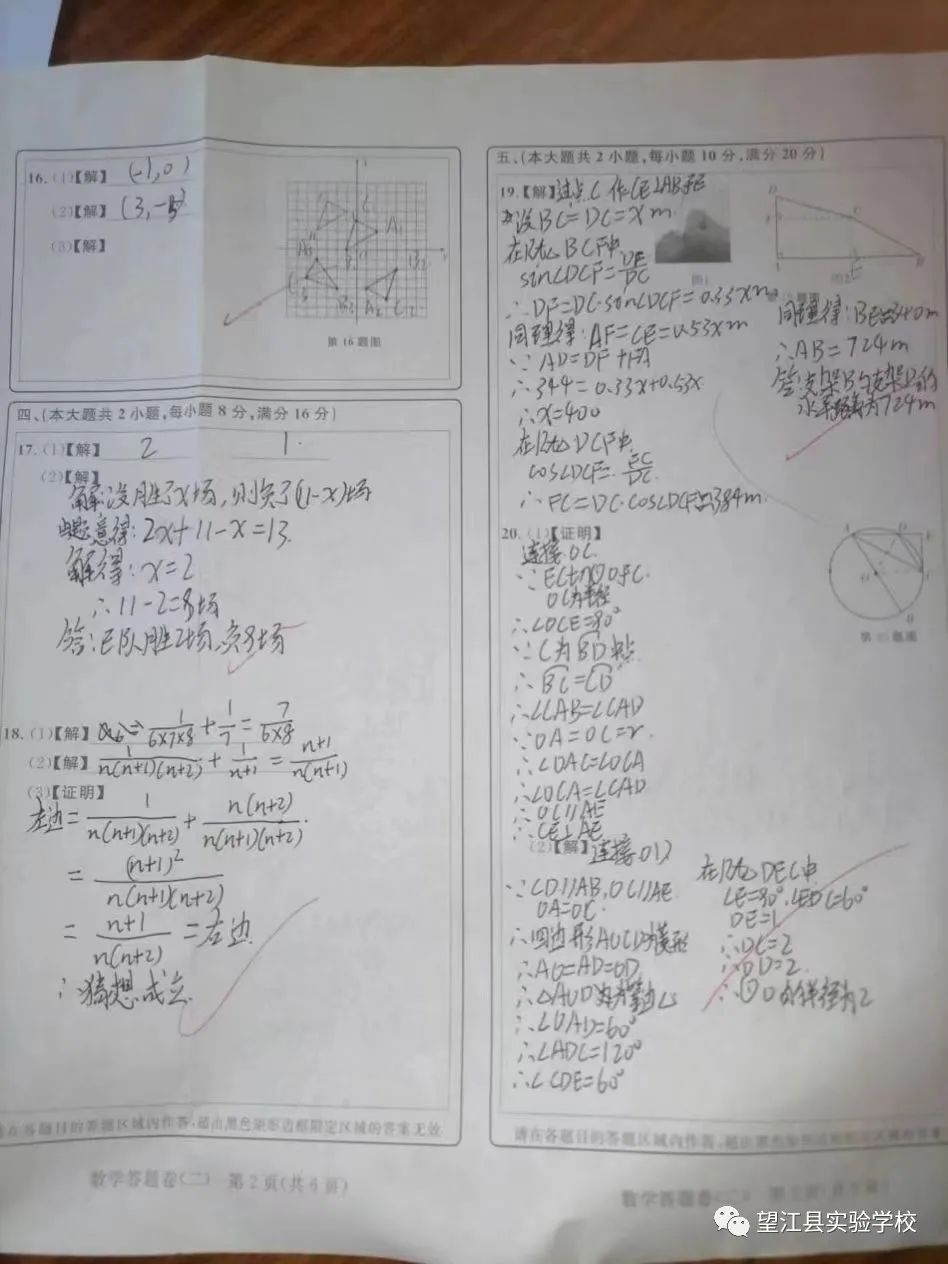 16.(1)【解】 (-1,0)
(2)【解】 (3,-5)
(3)【解】
第16题图
四、(本大题共2小题,每小题8分,满分16分)
17.(1)【解】 2 1.
(2)【解】
解:设胜了x场,则负了(1-x)场
由题意得:2x+11-x=13.
解得:x=2
∴11-2=8场
答:E队胜2场,负8场
18.(1)【解】 1/(6×7×8)+1/7=7/(6×8)
(2)【解】 1/(n(n+1)(n+2))+1/(n+1)=(n+1)/(n(n+1))
(3)【证明】
左边=1/(n(n+1)(n+2))+n(n+2)/(n(n+1)(n+2)).
=(n+1)²/(n(n+1)(n+2))
=(n+1)/(n(n+2))=右边.
∴猜想成立.
请在各题目的答题区域内作答,超出黑色矩形边框限定区域的答案无效
数学答题卷(二) 第2页(共6页)
五、(本大题共2小题,每小题10分,满分20分)
19.【解】过点C作CE⊥AB于E
设BC=DC=xm.
在Rt△BCF中,
sin∠DCF=DF/DC
∴DF=DC·sin∠DCF=0.33xm
同理得:AF=CE=0.53xm
∵AD=DF+FA
∴344=0.33x+0.53x
∴x=400
在Rt△DCF中,
cos∠DCF=FC/DC.
∴FC=DC·cos∠DCF≈384m.
图1
图2
同理得:BE≈340m
∴AB=724m
答:支架B与支架D的
水平距离为724m
20.(1)【证明】
连接OC
∵EC切⊙O于C.
OC为半径
∴∠OCE=90°
∵C为BD中点
∴BC=CD
∴∠CAB=∠CAD
∵OA=OC=r.
∴∠OAC=∠OCA
∴∠OCA=∠CAD
∴OC//AE
∴CE⊥AE
第20题图
(2)【解】连接OD
∵CD//AB,OC//AE
OA=OC.
∴四边形AOCD为菱形
∴AO=AD=OD
∴△AOD为等边△
∴∠OAD=60°
∴∠ADC=120°
∴∠CDE=60°
在Rt△DEC中
∠E=90°,∠EDC=60°
DE=1
∴DC=2
∴OD=2.
∴⊙O的半径为2
请在各题目的答题区域内作答,超出黑色矩形边框限定区域的答案
望江县实验学校